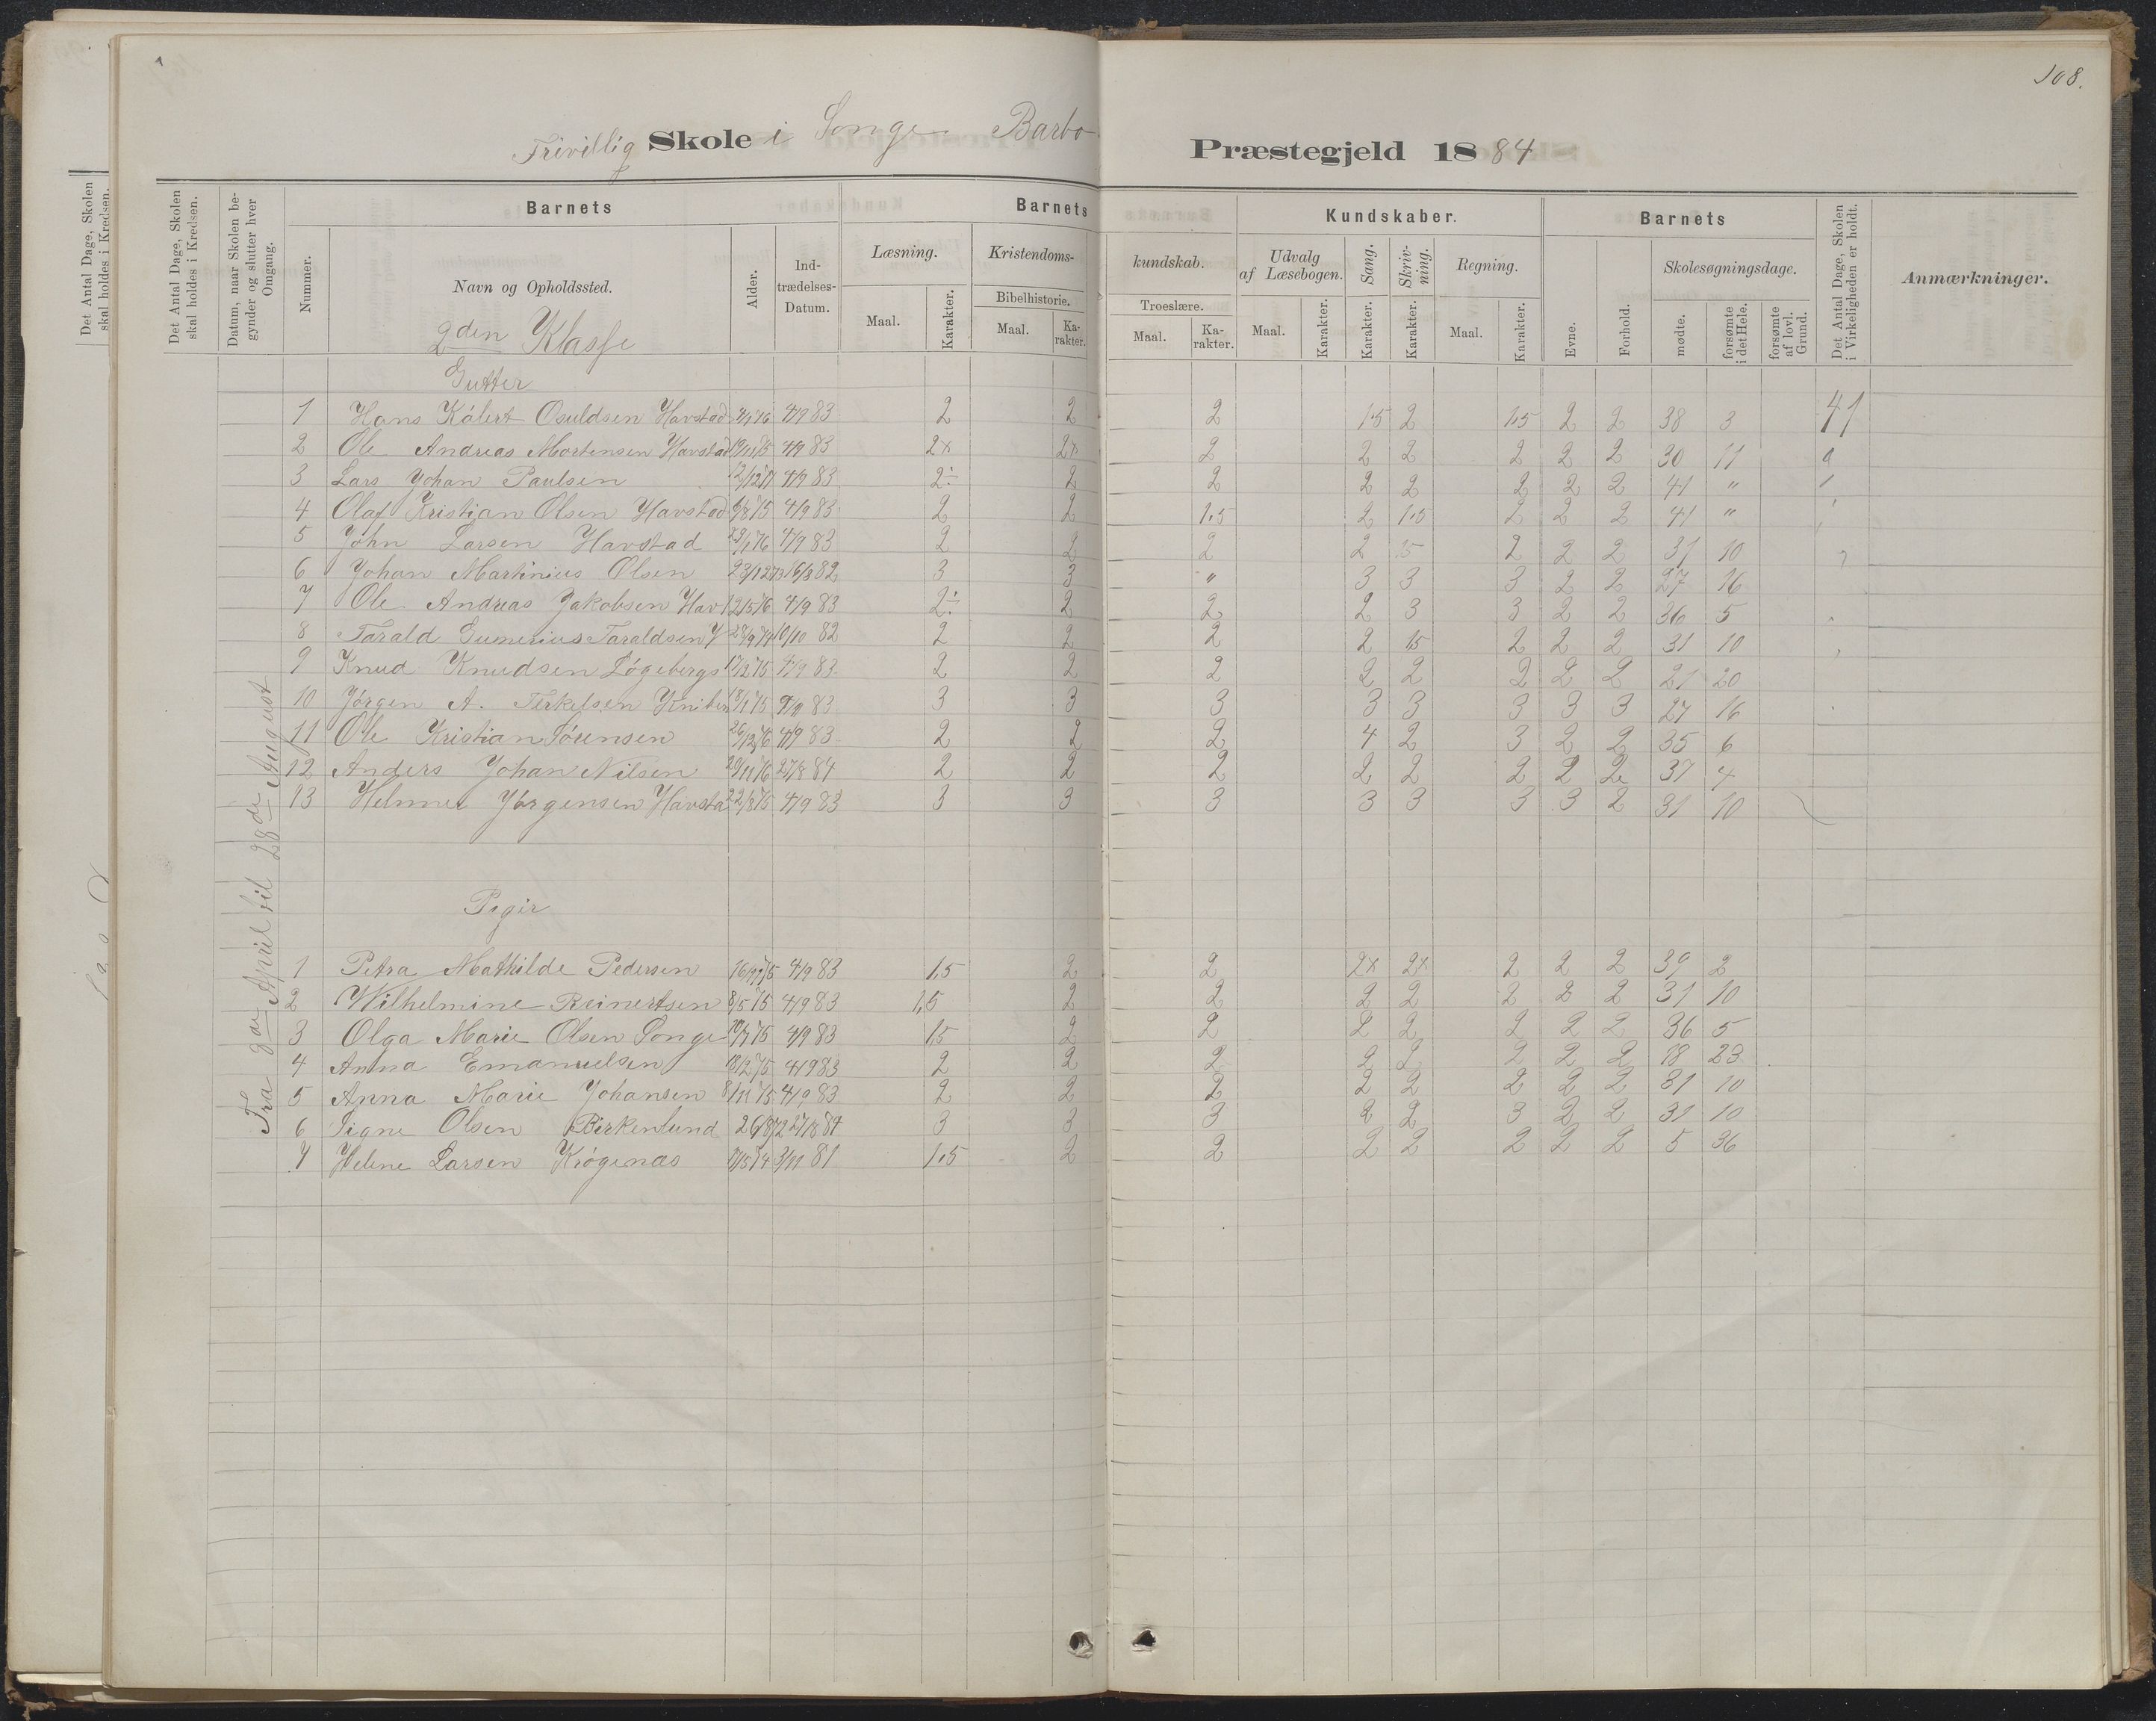 108.
Frivillig Skole i Songe Barbo Præstegjeld 1884
Det Antal Dage, Skolen skal holdes i Kredsen.
Det Antal Dage, Skolen skal holdes i Kredsen.
Datum, naar Skolen begynder og slutter hver Omgang.
Barnets
Barnets
Kundskaber.
Barnets
Det Antal Dage, Skolen i Virkeligheden er holdt.
Anmærkninger.
Nummer.
Navn og Opholdssted.
Alder.
Ind-trædelses-Datum.
Læsning.
Kristendoms-kundskab.
Udvalg af Læsebogen.
Sang.
Skriv-ning.
Regning.
Evne.
Forhold.
Skolesøgningsdage.
Maal. Karakter.
Bibelhistorie. Maal. Ka-rakter.
Troeslære. Maal. Ka-rakter.
Maal. Karakter. Karakter. Karakter. Maal. Karakter.
mødte. forsømte i det Hele. forsømte af lovl. Grund.
2den Klasse
Gutter
1 Hans Kålert Osuldsen Havstad 4/9 83 2 2 2 1,5 2 1,5 2 2 38 3 41
2 Ole Andreas Mortensen Havstad 4/9 83 2x 2x 2 2 2 2 2 2 30 11
3 Lars Johan Paulsen 4/9 83 2÷ 2 2 2 2 2 2 2 41 "
4 Olaf Kristian Olsen Havstad 6/8 75 4/9 83 2 2 1,5 2 1,5 2 2 2 41 "
5 John Larsen Havstad 4/9 83 2 2 2 2 2 2 2 31 10
6 Johan Martinius Olsen 16/8 82 3 3 " 3 3 3 2 2 27 16
7 Ole Andreas Jakobsen Hav 4/9 83 2÷ 2 2 2 3 3 2 2 36 5
8 Tarald Gunerius Taraldsen 10/10 82 2 2 2 2 1,5 2 2 2 31 10
9 Knud Knudsen Løgebergs 4/9 83 2 2 2 2 2 2 2 2 21 20
10 Jörgen A. Terkelsen 83 3 3 3 3 3 3 3 3 27 16
11 Ole Kristian Sörensen 26/12 76 4/9 83 2 2 2 4 2 3 2 2 35 6
12 Anders Johan Nilsen 27/8 84 2 2 2 2 2 2 2 2 37 4
13 Helmer Jörgensen Havsta 22/8 75 4/9 83 3 3 3 3 3 3 3 2 31 10
Fra 9de April til 28de August
Piger
1 Petra Mathilde Pedersen 4/9 83 1,5 2 2 2x 2x 2 2 2 39 2
2 Wilhelmine Reinertsen 8/5 75 4/9 83 1,5 2 2 2 2 2 2 2 31 10
3 Olga Marie Olsen Songe 4/9 83 1,5 2 2 2 2 2 2 2 36 5
4 Anna Emanuelsen 18/2 75 4/9 83 2 2 2 2 2 2 2 2 18 23
5 Anna Marie Johansen 8/11 75 4/9 83 2 2 2 2 2 2 2 2 31 10
6 Signe Olsen Birkenlund 26/8 72 27/8 84 3 3 3 2 2 3 2 2 31 10
7 Helene Larsen Krøgenæs 3/11 81 1,5 2 2 2 2 2 2 2 5 36